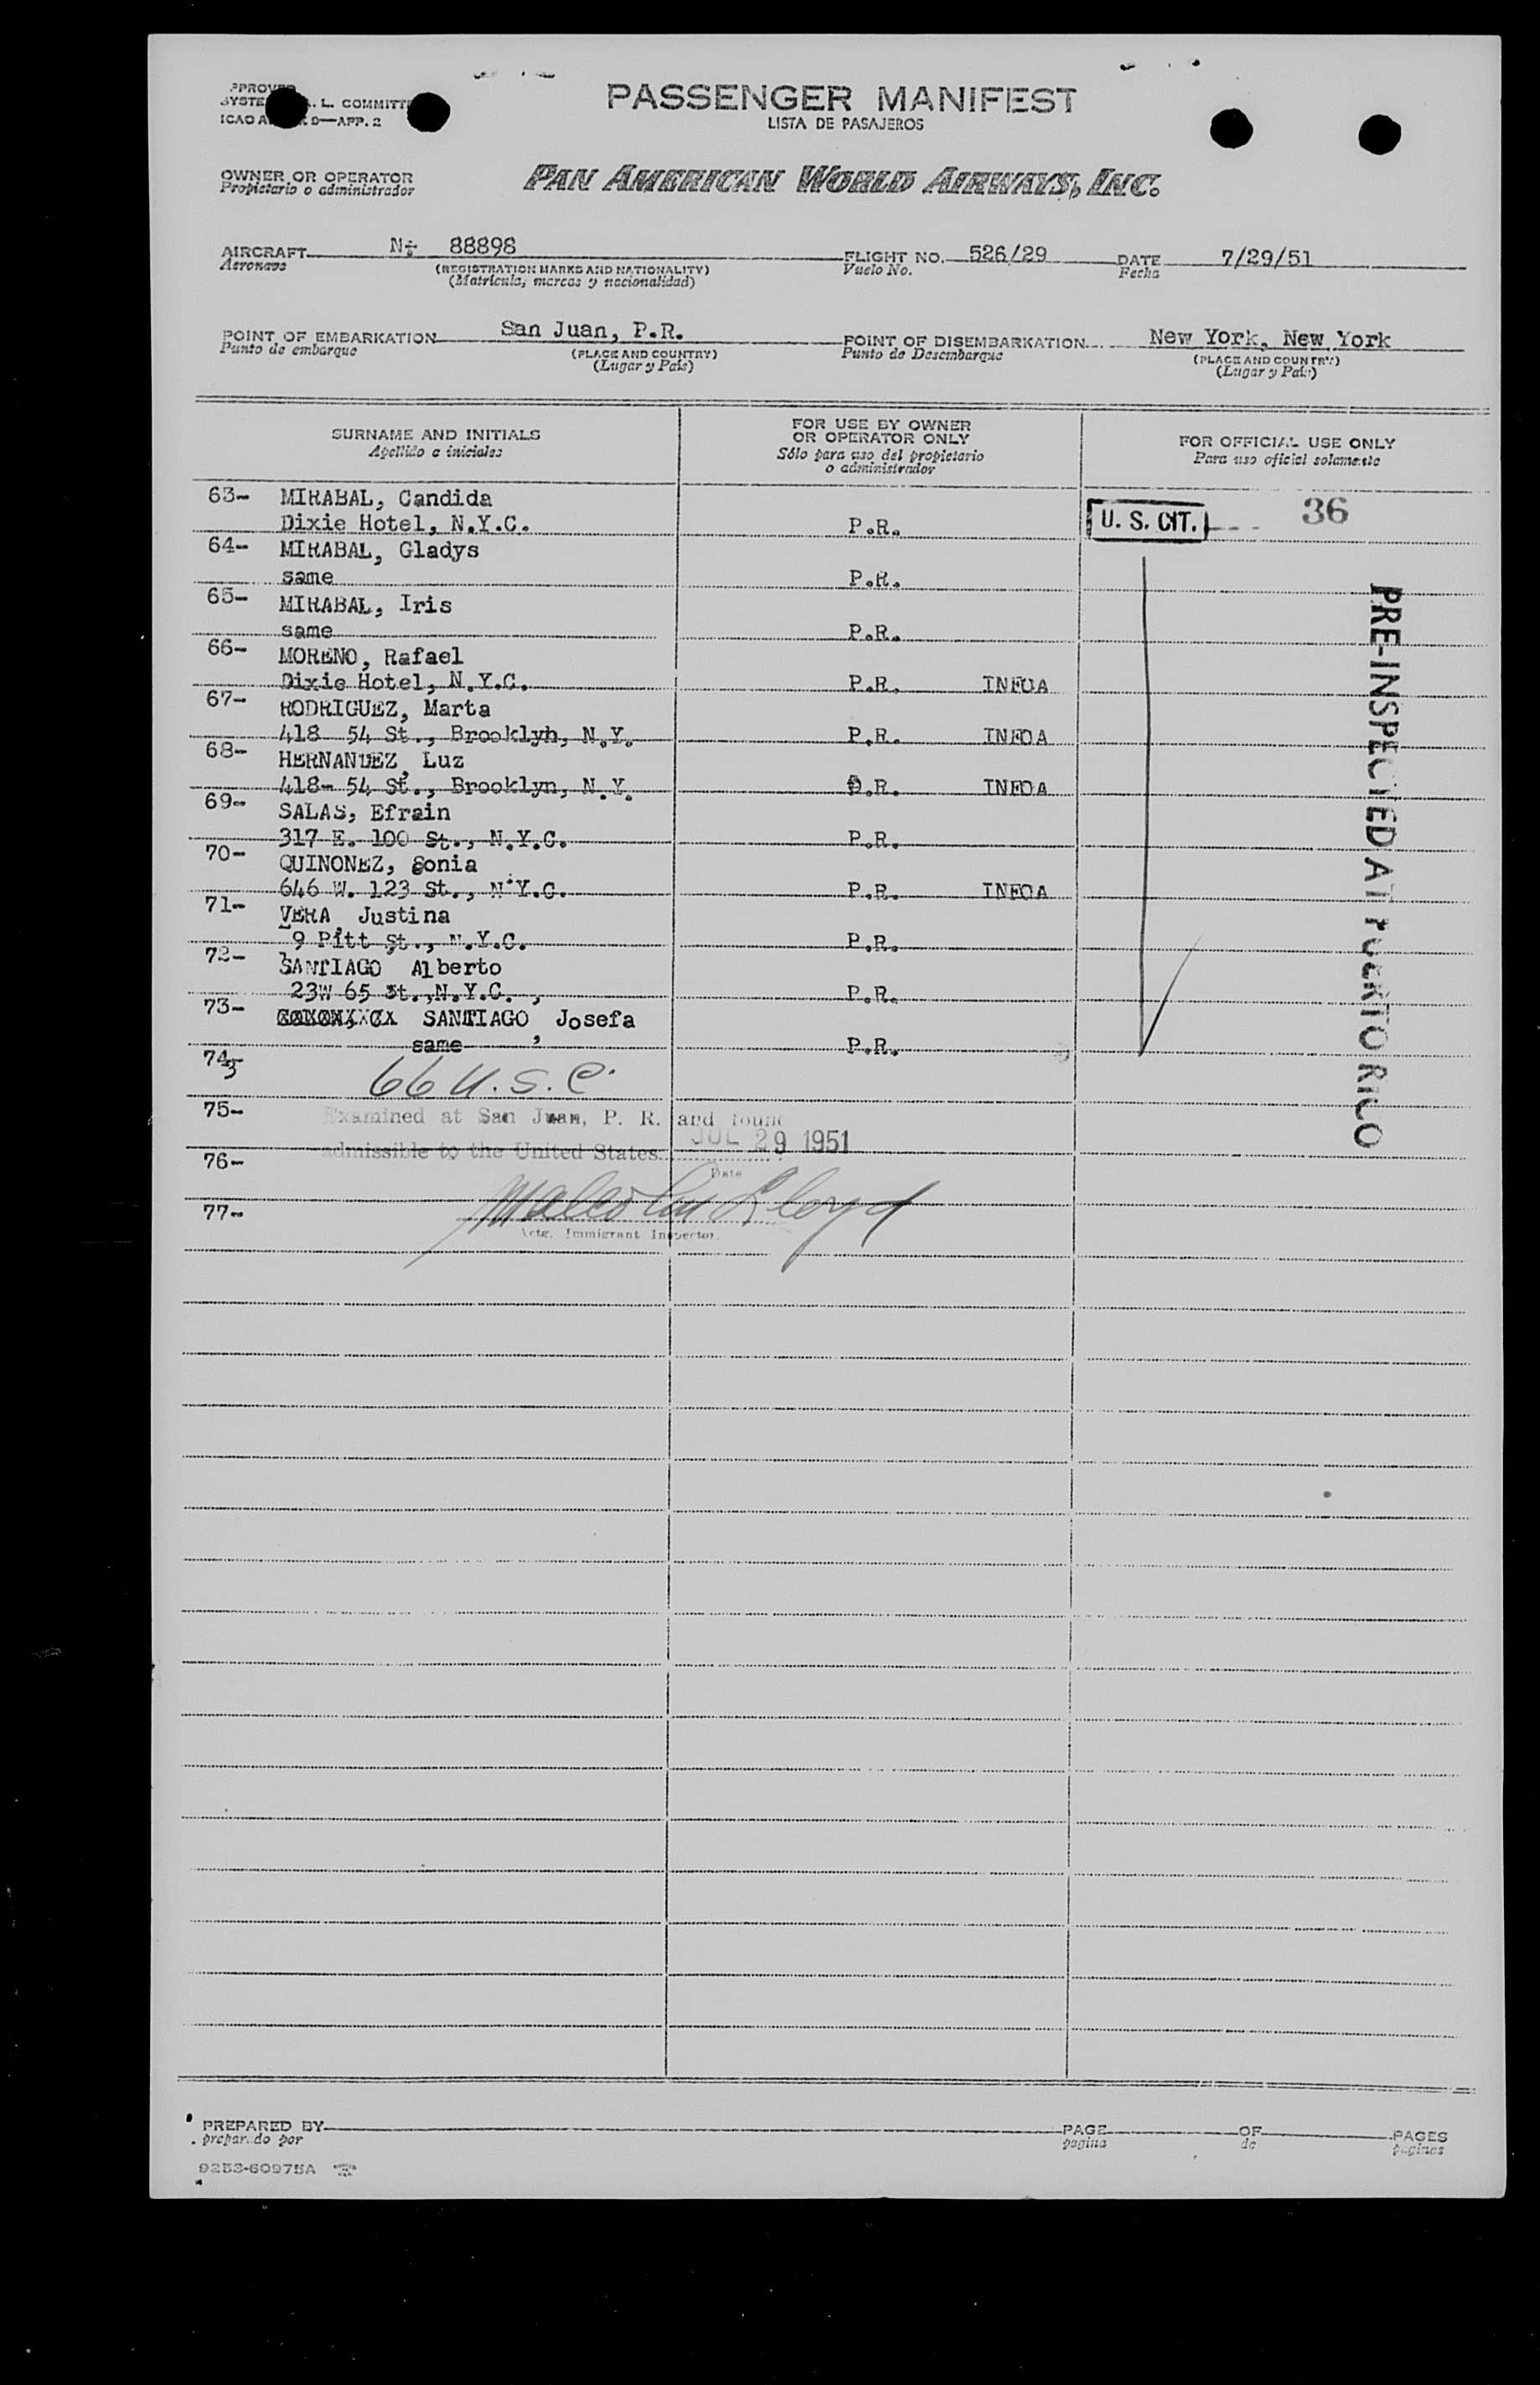 PASSENGER MANIFEST
LISTA DE PASAJEROS
L. COMMITTE
9—APP. 2
OWNER OR OPERATOR
Propietario o administrador
PAN AMERICAN WORLD AIRWAYS, INC.
AIRCRAFT 88898 FLIGHT NO. 526/29 DATE 7/29/51
Aeronave (REGISTRATION MARKS AND NATIONALITY) Vuelo No. Fecha
(Matrícula, marcas y nacionalidad)
POINT OF EMBARKATION San Juan, P.R. POINT OF DISEMBARKATION New York, New York
Punto de embarque (PLACE AND COUNTRY) Punto de Desembarque (PLACE AND COUNTRY)
(Lugar y País) (Lugar y País)
SURNAME AND INITIALS FOR USE BY OWNER OR OPERATOR ONLY FOR OFFICIAL USE ONLY
Apellido e iniciales Sólo para uso del propietario o administrador Para uso oficial solamente
63- MIRABAL, Candida
Dixie Hotel, N.Y.C. P.R. U. S. CIT. 36
64- MIRABAL, Gladys
same P.R.
65- MIRABAL, Iris
same P.R.
66- MORENO, Rafael
Dixie Hotel, N.Y.C. P.R. INFOA
67- RODRIGUEZ, Marta
418 54 St., Brooklyh, N.Y. P.R. INFOA
68- HERNANDEZ, Luz
418- 54 St., Brooklyn, N.Y. P.R. INFOA
69- SALAS, Efrain
317 E. 100 St., N.Y.C. P.R.
70- QUINONEZ, Sonia
646 W. 123 St., N.Y.C. P.R. INFOA
71- VERA, Justina
9 Pitt St., N.Y.C. P.R.
72- SANTIAGO, Alberto
23W 65 St., N.Y.C. P.R.
73- SANTIAGO, Josefa
same P.R.
74- 66 U.S.C.
75- Examined at San Juan, P. R. and found
76- admissible to the United States JUL 29 1951
Date
77- Malcolm Lloyd
Actg. Immigrant Inspector.
PRE-INSPECTED AT PUERTO RICO
PREPARED BY PAGE OF PAGES
preparado por pagina de paginas
9253-60975A